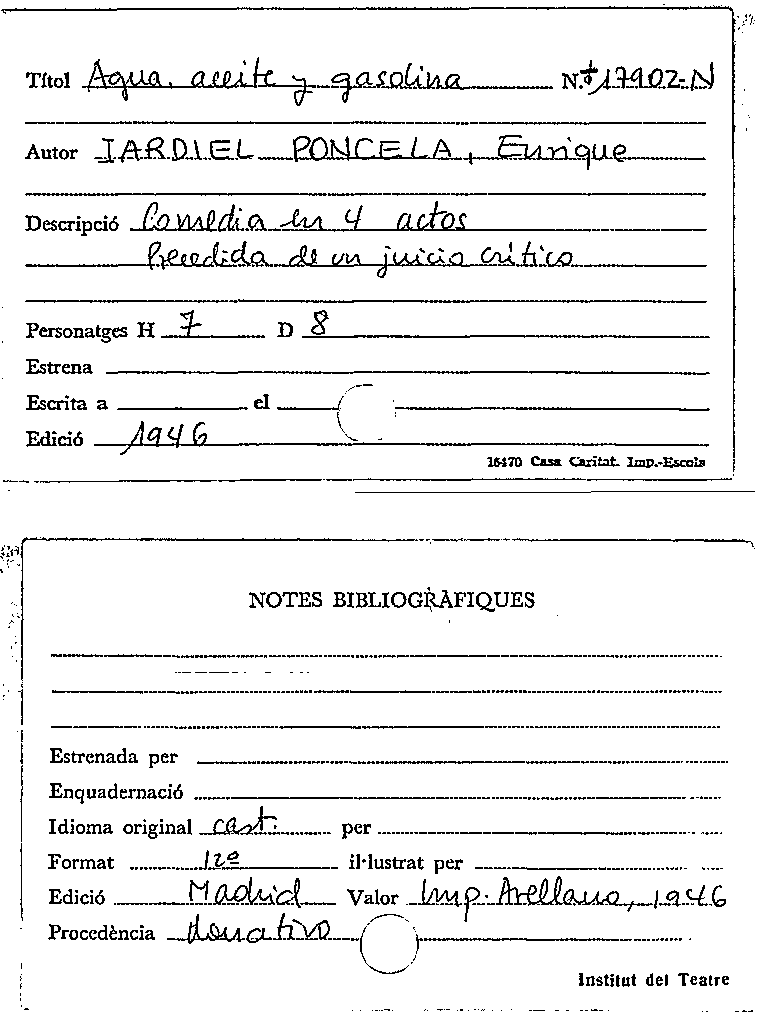 Títol Agua, aceite y gasolina N.º 17902-N
Autor JARDIEL PONCELA, Enrique
Descripció Comedia en 4 actos
Precedida de un juicio crítico
Personatges H 7 D 8
Estrena
Escrita a el
Edició 1946
16470 Casa Caritat. Imp.-Escola
NOTES BIBLIOGRÀFIQUES
Estrenada per
Enquadernació
Idioma original cast. per
Format 12º il·lustrat per
Edició Madrid Valor Imp. Arellano, 1946
Procedència donativo
Institut del Teatre